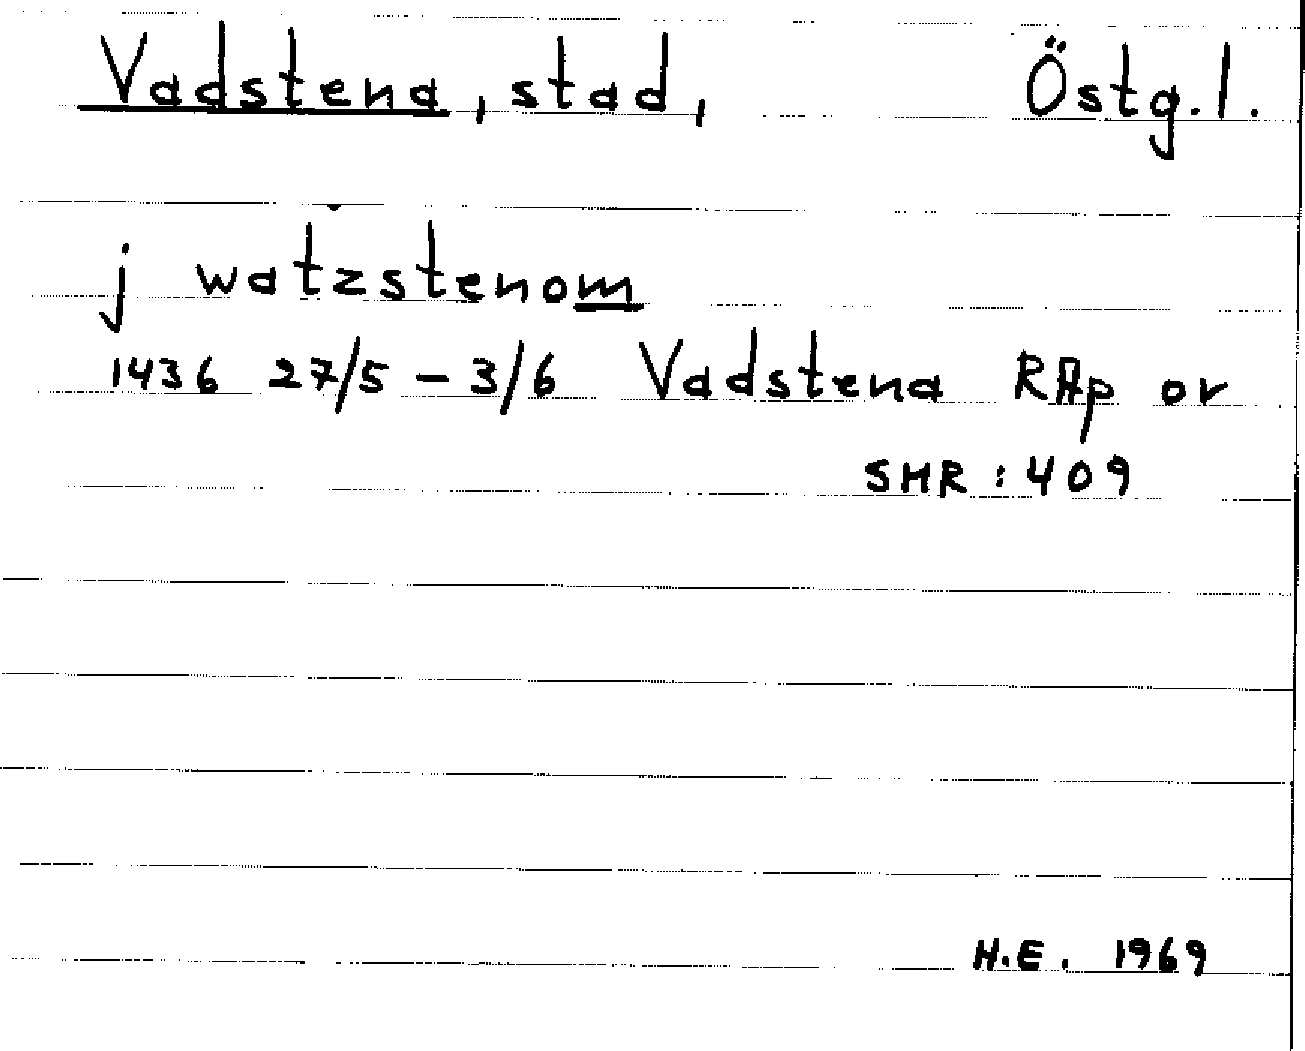 Vadstena, stad, Östg. l.
j watzstenom
1436 27/5 - 3/6 Vadstena RAp or
SMR: 409
H.E. 1969